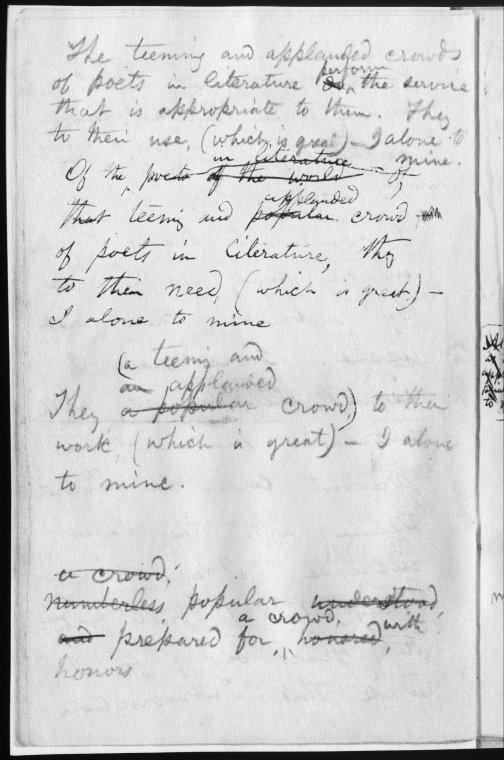 The teeming and applauded crowds
of poets in literature do perform the service
that is appropriate to them. They
to their use, (which is great) — I alone to
mine.
Of the poets of the world in literature Of
that teeming and popular applauded crowd
of poets in literature, they
to their need (which is great) —
I alone to mine
(a teeming and
an applauded
They a popular crowd) to their
work, (which is great) — I alone
to mine.
a crowd,
numberless, popular understood,
and prepared for, a crowd, honored, with
honors